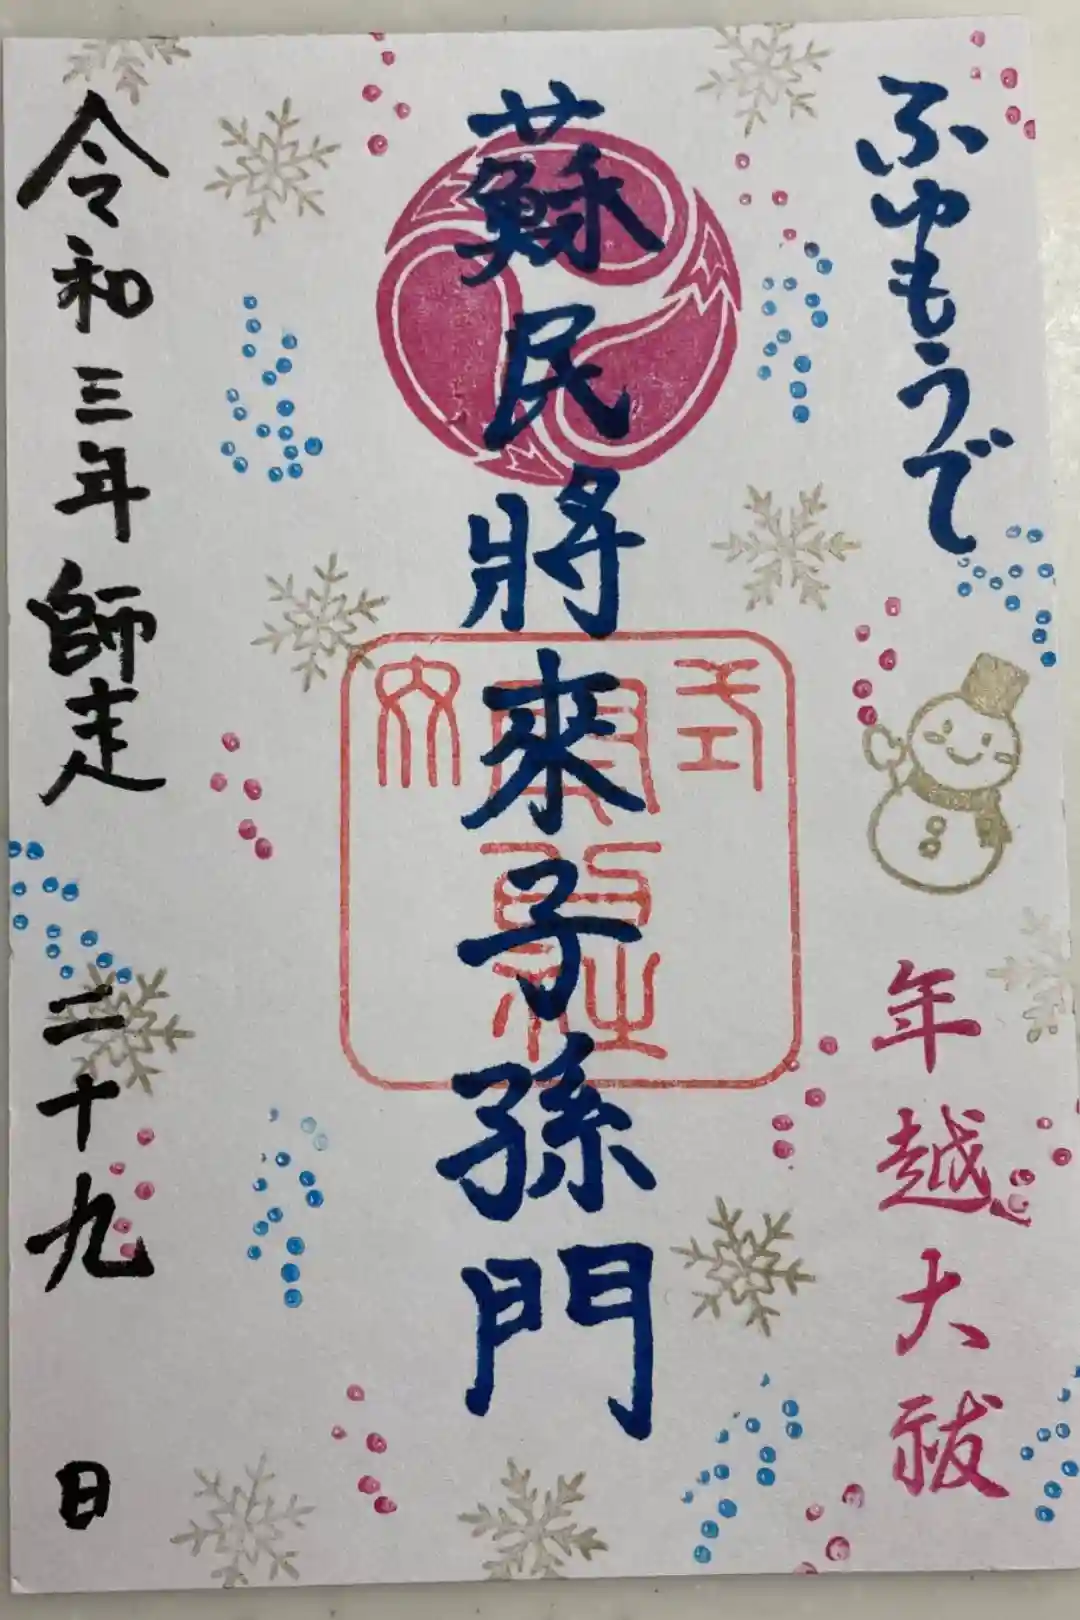 ふゆもうで
年越大祓
蘇民將來子孫門
令和三年師走二十九日